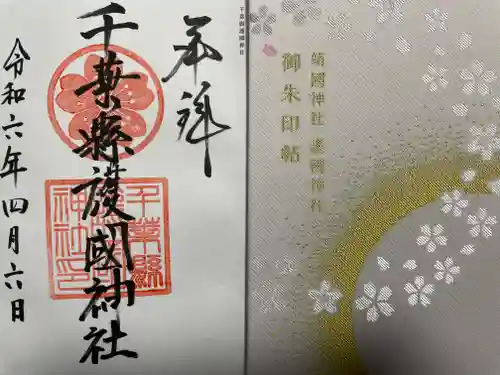 奉拝
千葉縣護國神社
令和六年四月六日
千葉縣護國神社印
千葉縣護國神社
靖國神社 護國神社
御朱印帖